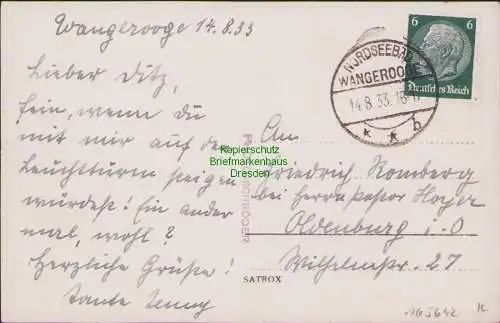 Wangerooge 14.8.33
Lieber Ditz,
fein, wenn du
mit mir auf den
Leuchtturm steigen
würdest! Ein ander
mal, wohl?
Herzliche Grüße!
Tante Jenny
6 6
Deutsches Reich
NORDSEEBAD
WANGEROOGE
14.8.33.
* * b
An
Friedrich Romberg
bei Herrn Pastor Hoyer
Oldenburg i. O
Wilhelmstr. 27
SATROX
Kopierschutz
Briefmarkenhaus
Dresden
165642